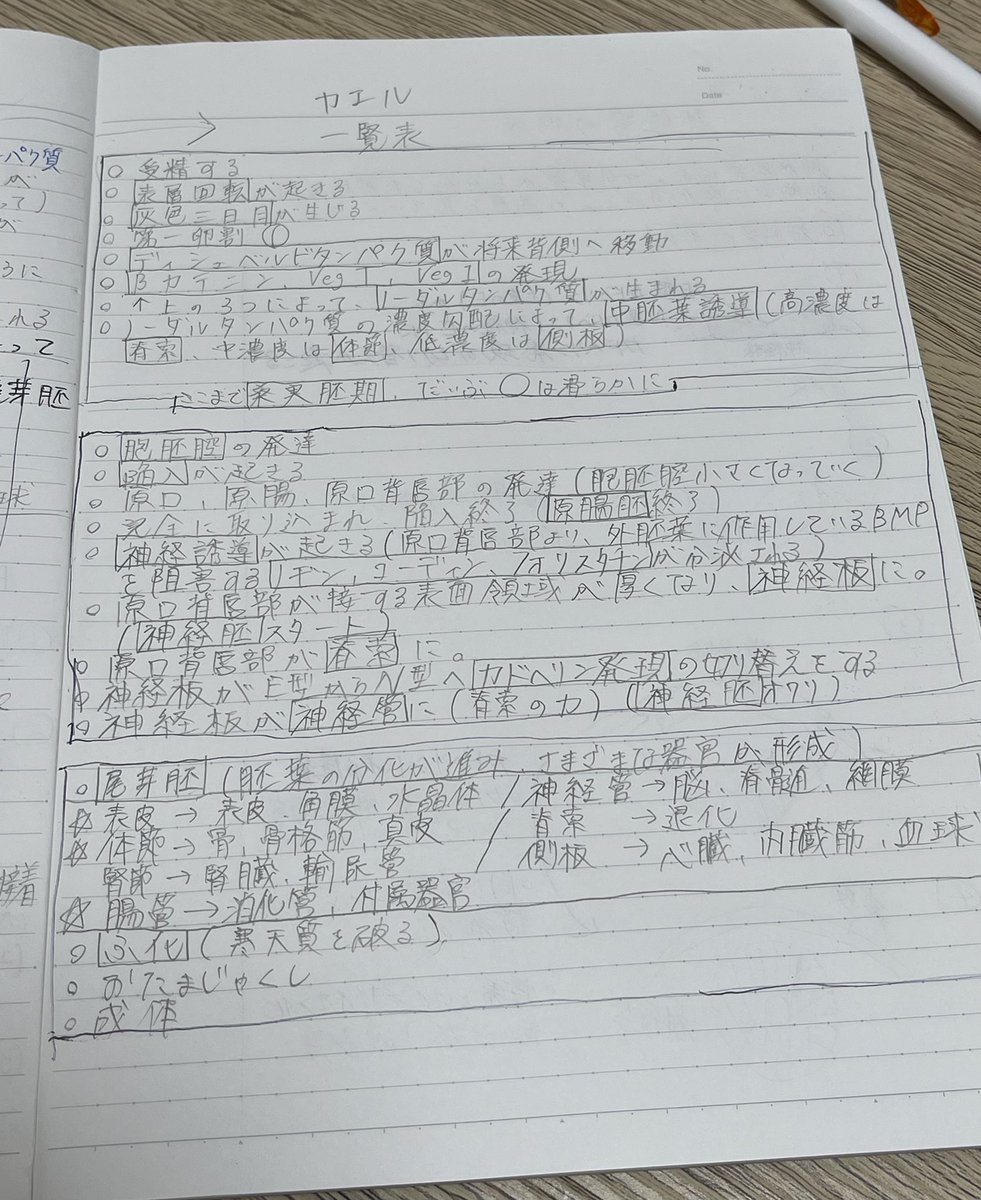 No.
Date
カエル
一覧表
○ 受精する
○ 表層回転が起きる
○ 灰色三日月が生じる
○ 第一卵割
○ ディシェベルドタンパク質が将来背側へ移動
○ βカテニン、VegT、Vg1の発現
○ ↑上の3つによって、ノーダルタンパク質が生まれる
○ ノーダルタンパク質の濃度勾配によって、中胚葉誘導(高濃度は
脊索、中濃度は体節、低濃度は側板)
ここまで桑実胚期、だいぶ○は滑らかに
○ 胞胚腔の発達
○ 陥入が起きる
○ 原口、原腸、原口背唇部の発達(胞胚腔小さくなっていく)
○ 完全に取り込まれ、陥入終了(原腸胚終了)
○ 神経誘導が起きる(原口背唇部より、外胚葉に作用しているBMP
を阻害するノギン、コーディン、フォリスタチンが分泌される)
○ 原口背唇部が接する表面領域が厚くなり、神経板に。
(神経胚スタート)
○ 原口背唇部が脊索に。
○ 神経板がE型からN型へカドヘリン発現の切り替えをする
○ 神経板が神経管に(脊索の力)(神経胚オワリ)
○ 尾芽胚(胚葉の分化が進み、さまざまな器官が形成)
☆ 表皮→表皮、角膜、水晶体 / 神経管→脳、脊髄、網膜
☆ 体節→骨、骨格筋、真皮 / 脊索→退化
腎節→腎臓、輸尿管 / 側板→心臓、内臓筋、血球
☆ 腸管→消化管、付属器官
○ ふ化(寒天質を破る)
○ おたまじゃくし
○ 成体
パク質
が
って)
が
うに
れる
って
芽胚
球
接着